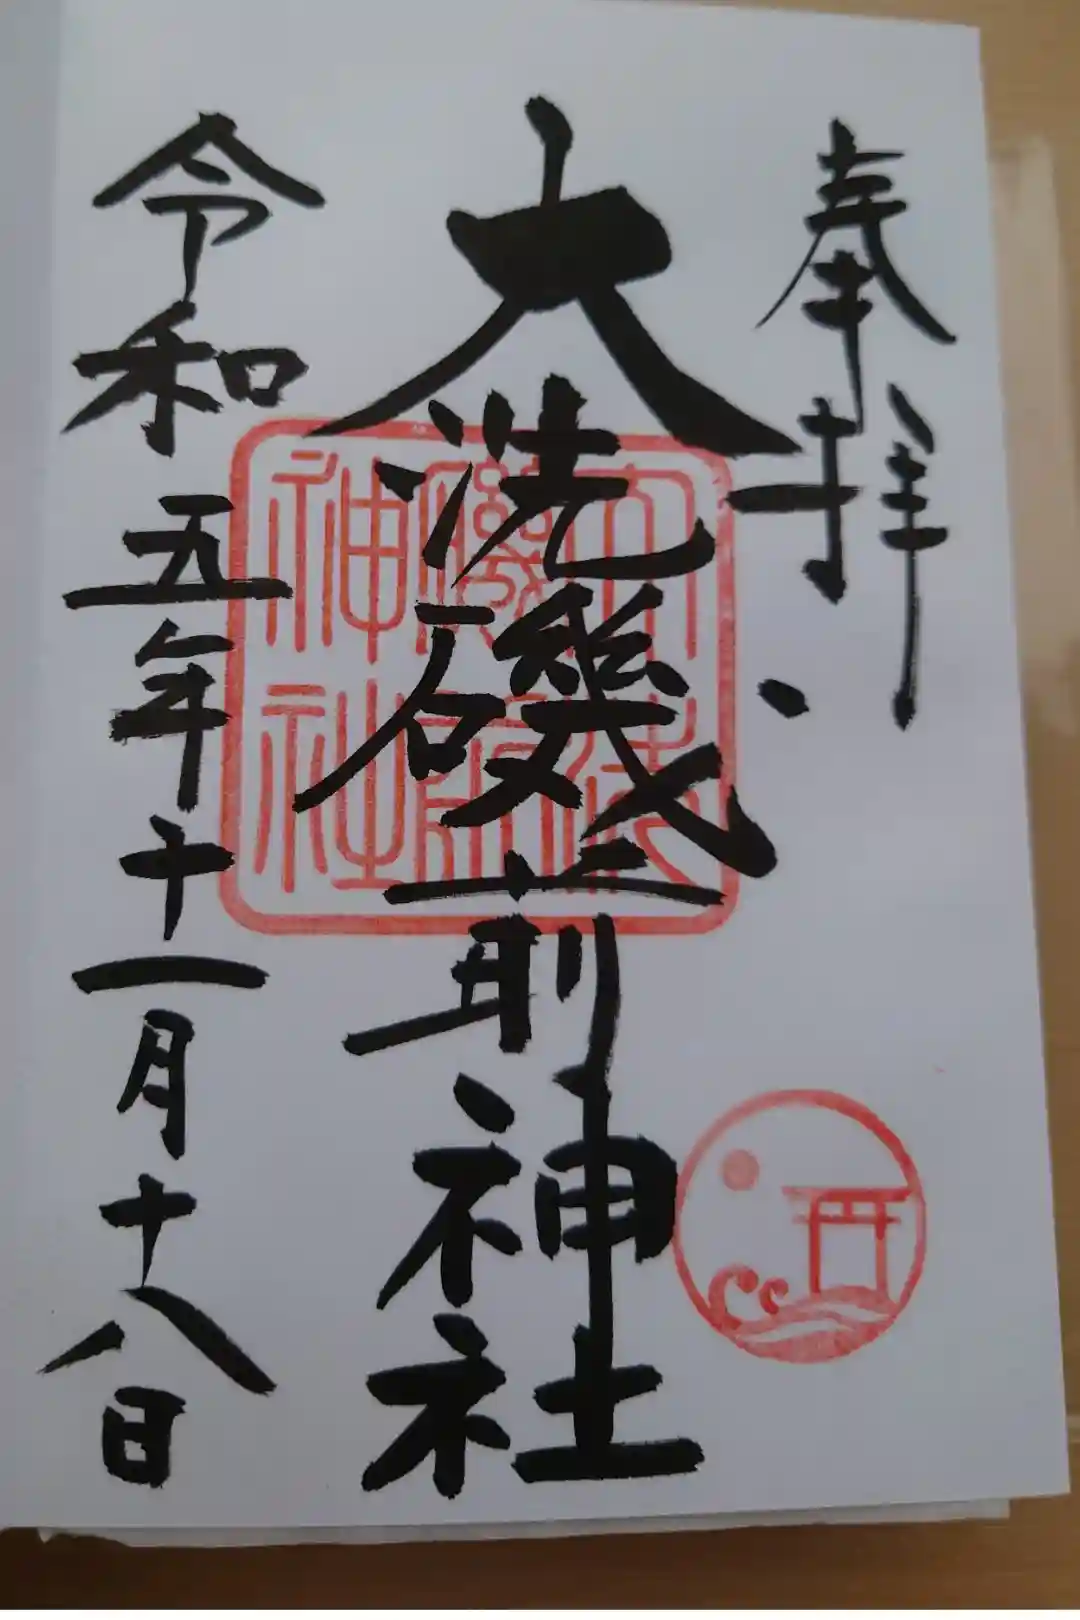 奉拝
大洗磯前神社
令和五年十一月十八日
大洗
磯前
神社